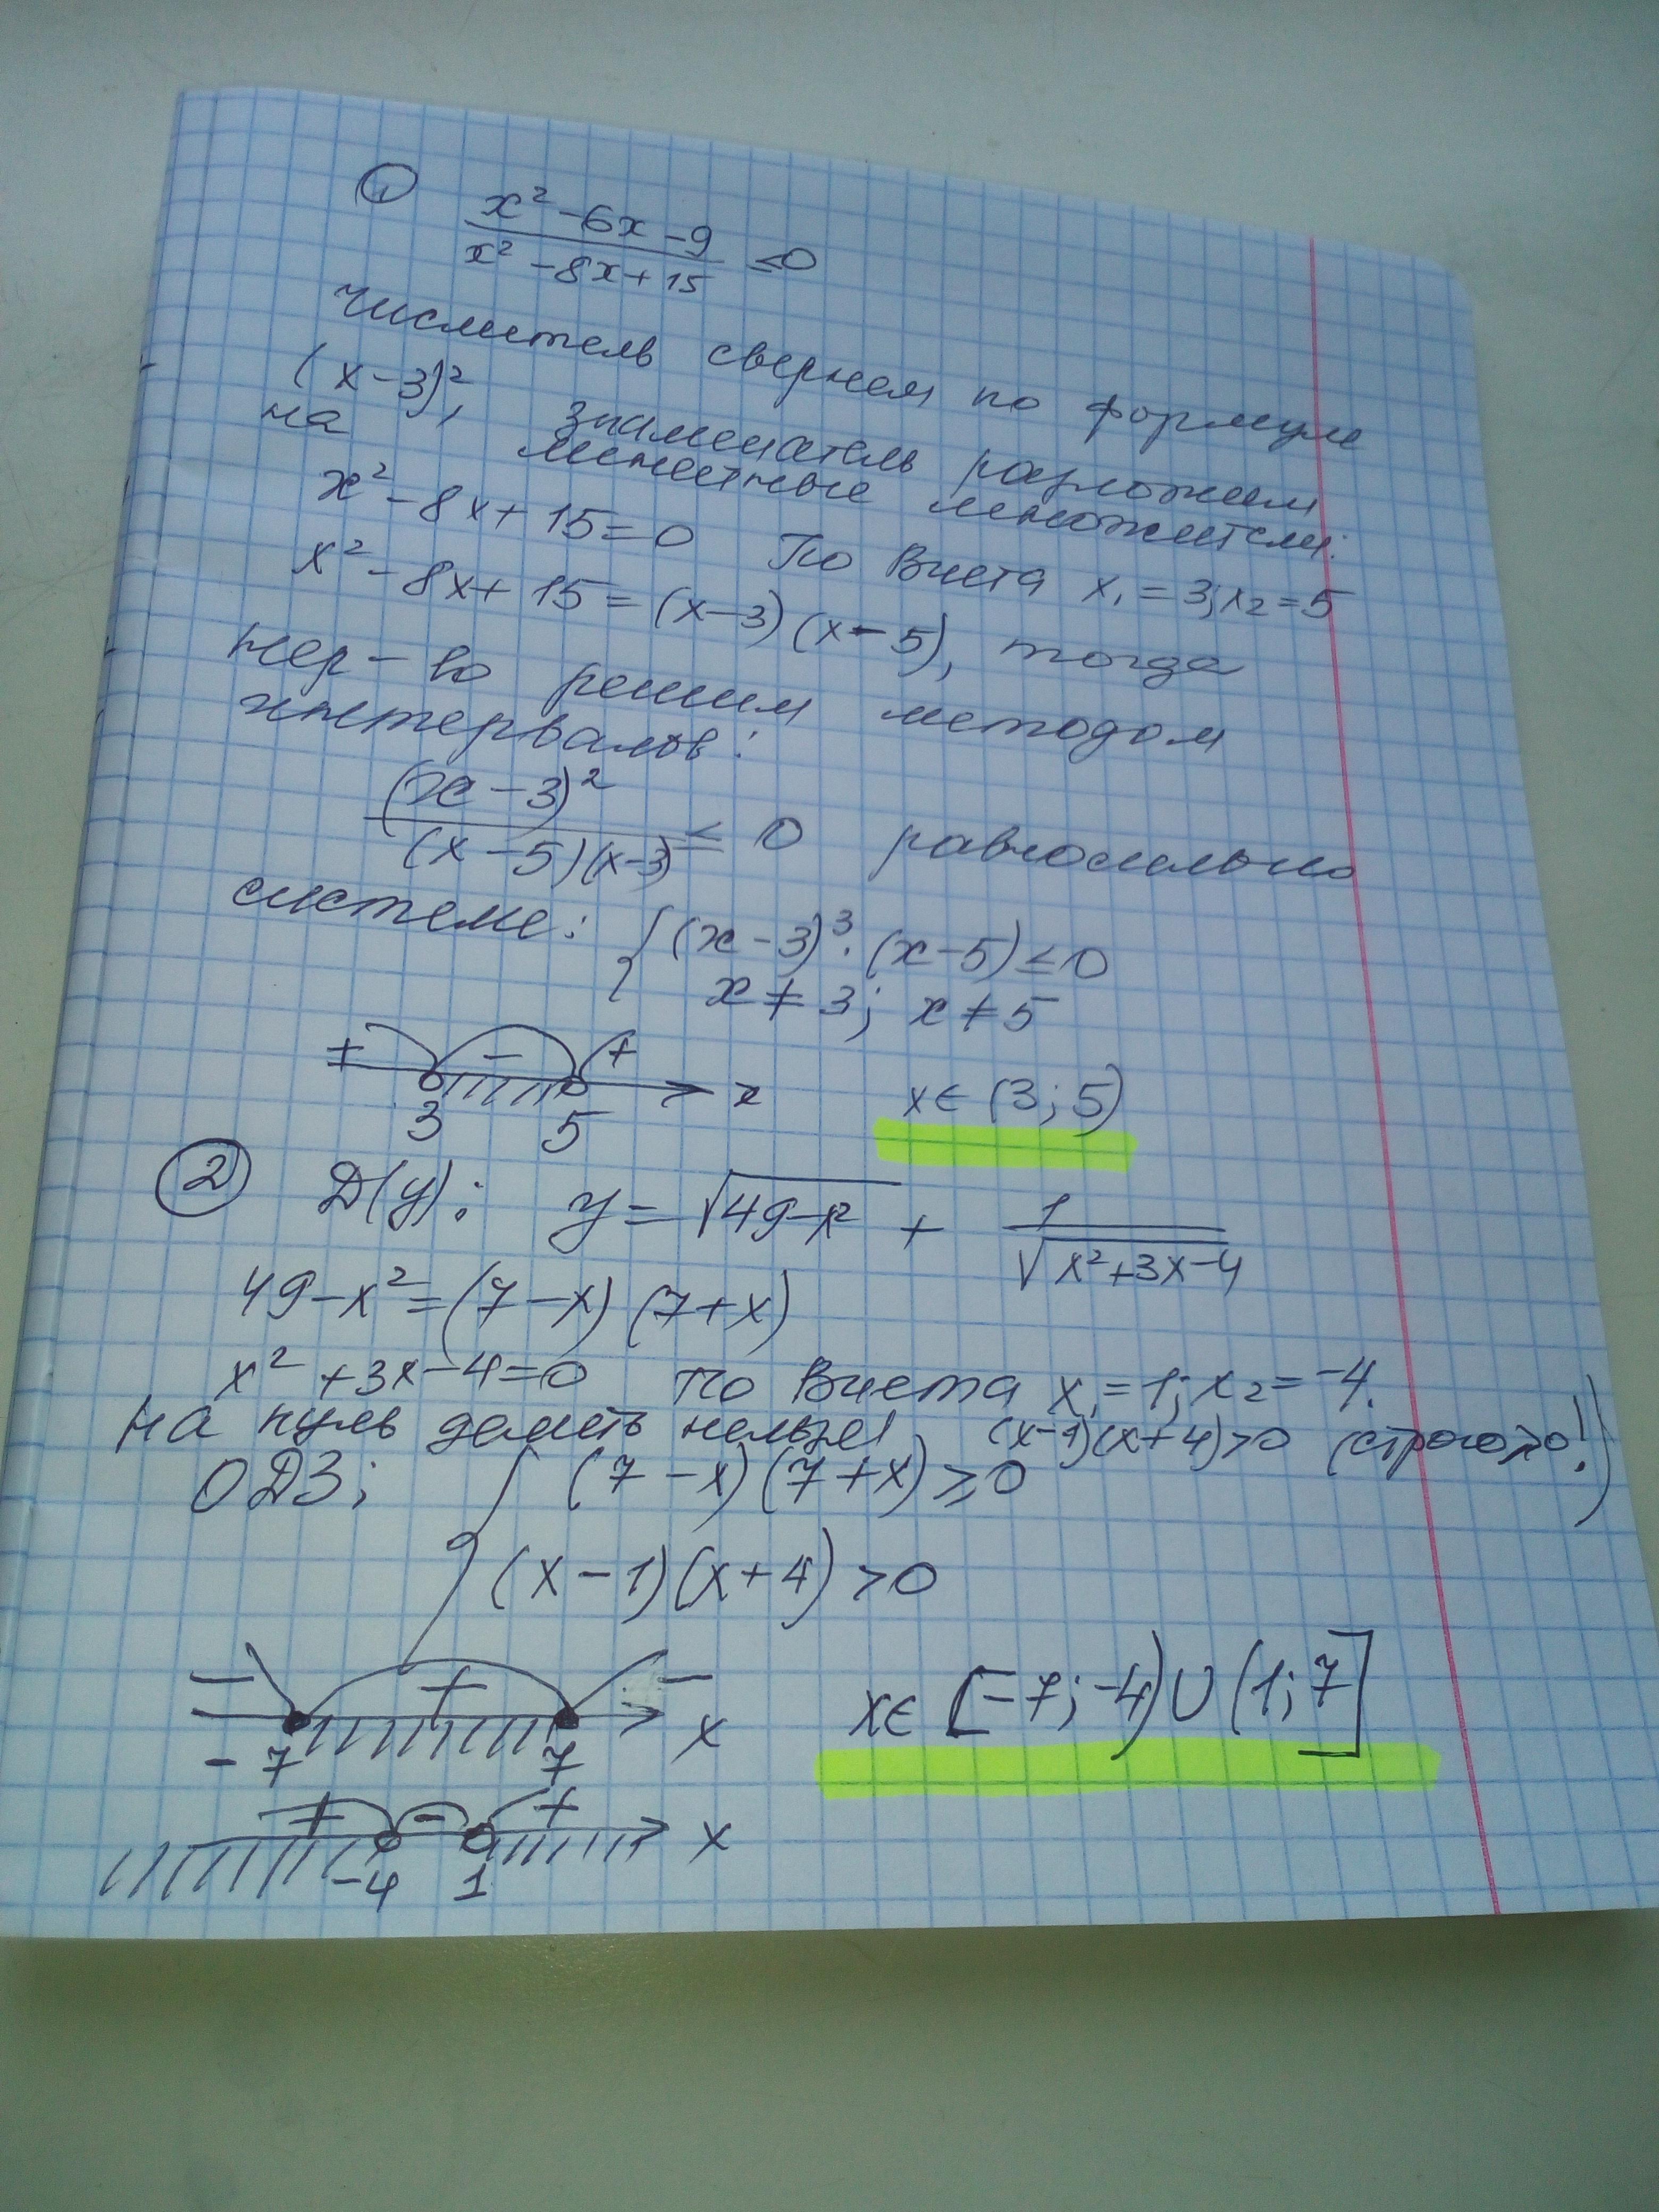 1
x² -6x -9
x² -8x+15 ≤0
Числитель свернем по формуле
(x-3)², знаменатель разложим
на множители:
x²-8x+15=0 По Виета x₁=3; x₂=5
x²-8x+15=(x-3)(x-5), тогда
нер-во решим методом
интервалов:
(x-3)²
(x-5)(x-3) ≤ 0 равносильно
системе: { (x-3)³·(x-5)≤0
x≠3; x≠5
+ - + x
3 5
x∈(3;5)
2 D(y): y=√49-x² + 1
√x²+3x-4
49-x²=(7-x)(7+x)
x²+3x-4=0 по Виета x₁=1; x₂=-4.
На нуль делить нельзя! (x-1)(x+4)>0 (строго >0!)
ОДЗ: { (7-x)(7+x)≥0
(x-1)(x+4)>0
- + - x
-7 7
x∈[-7;-4)∪(1;7]
+ - + x
-4 1